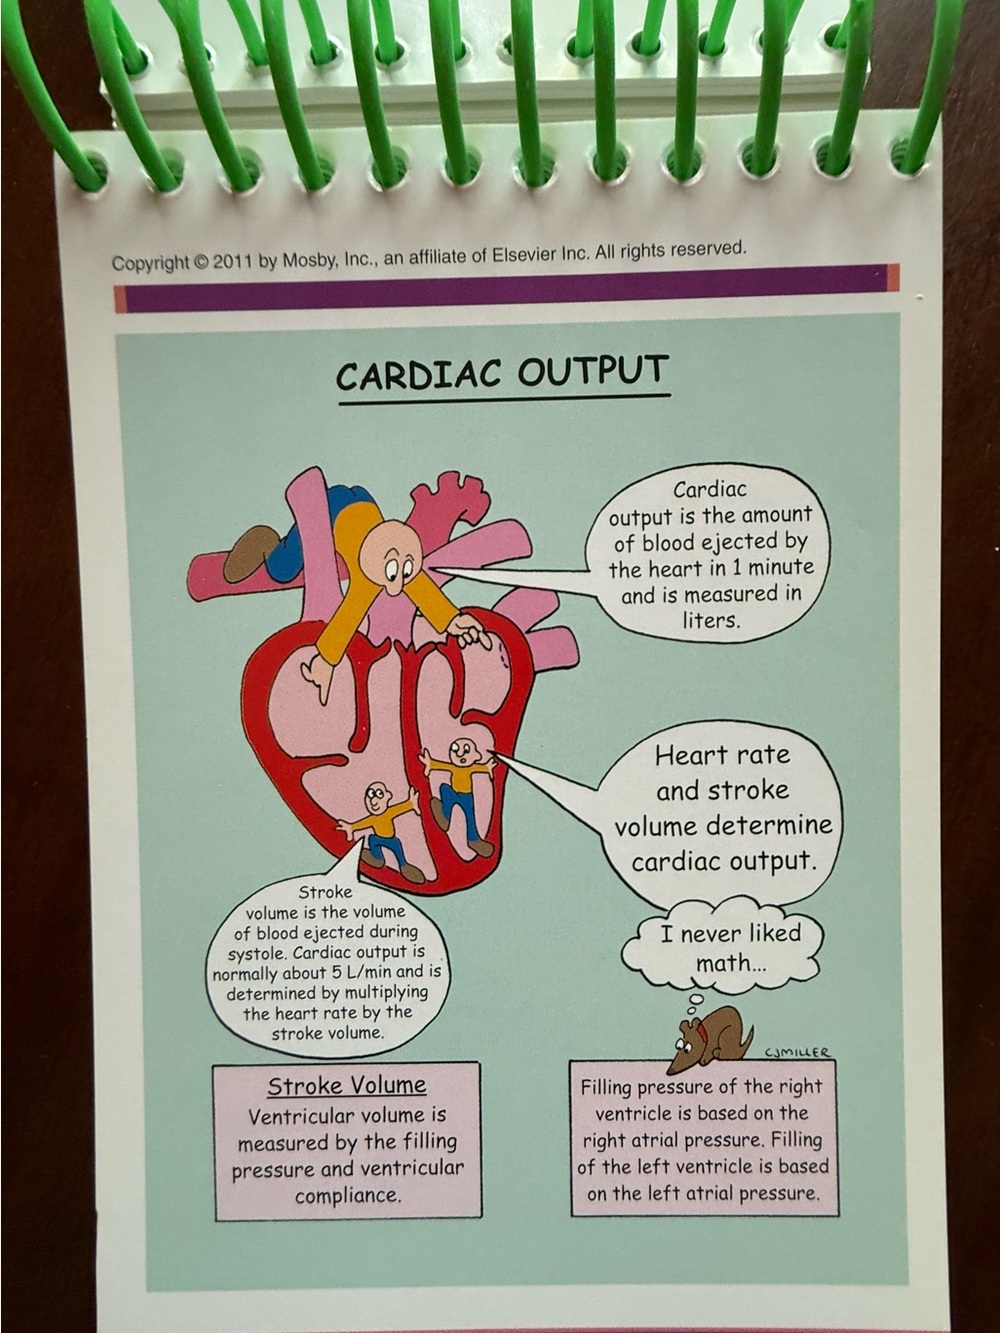 Copyright © 2011 by Mosby, Inc., an affiliate of Elsevier Inc. All rights reserved.
CARDIAC OUTPUT
Cardiac
output is the amount
of blood ejected by
the heart in 1 minute
and is measured in
liters.
Heart rate
and stroke
volume determine
cardiac output.
Stroke
volume is the volume
of blood ejected during
systole. Cardiac output is
normally about 5 L/min and is
determined by multiplying
the heart rate by the
stroke volume.
I never liked
math...
CJMILLER
Stroke Volume
Ventricular volume is
measured by the filling
pressure and ventricular
compliance.
Filling pressure of the right
ventricle is based on the
right atrial pressure. Filling
of the left ventricle is based
on the left atrial pressure.